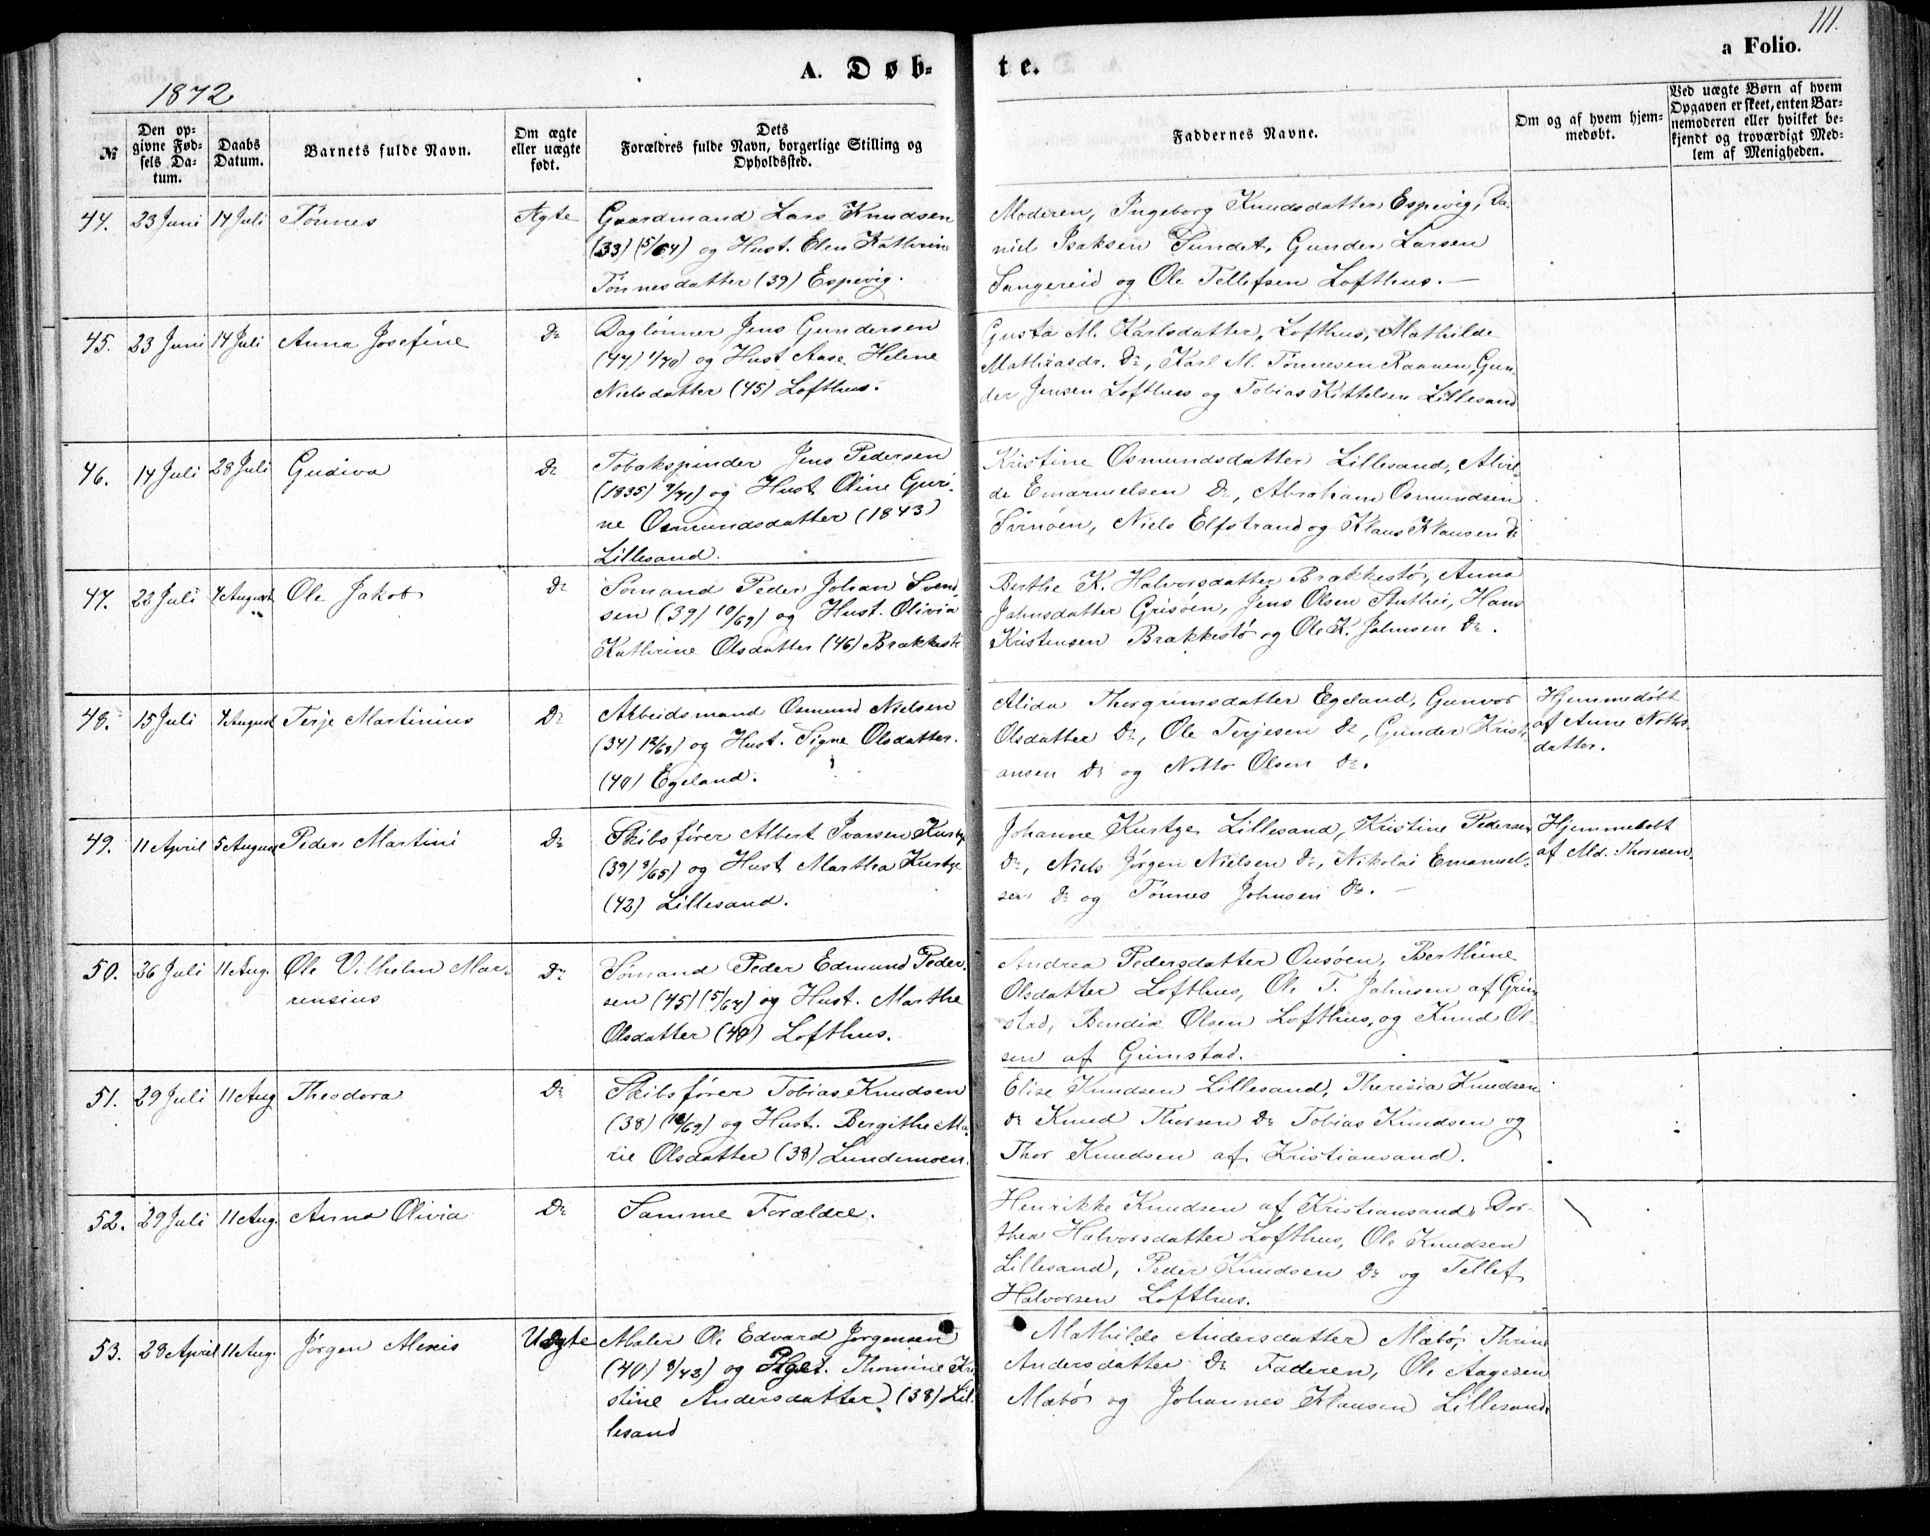 111.
a Folio.
A. Døb-
te.
1872
№
Den op-
givne Fød-
sels Da-
tum.
Daabs
Datum.
Barnets fulde Navn.
Om ægte
eller uægte
født.
Dets
Forældres fulde Navn, borgerlige Stilling og
Opholdssted.
Faddernes Navne.
Om og af hvem hjem-
medøbt.
Ved uægte Børn af hvem
Opgaven er skeet, enten Bar-
nemoderen eller hvilket be-
kjendt og troværdigt Med-
lem af Menigheden.
44. 23 Juni 14 Juli Tønnes Ægte
Gaardmand Lars Knudsen
(33) (5/64) og Hust. Elen Kathrine
Tønnesdatter (39) Espevig.
Moderen, Ingeborg Knudsdatter Espevig, Da-
niel Isaksen Sundet, Gunder Larsen
Sangereid og Ole Tellefsen Lofthus. —
45. 23 Juni 14 Juli Anna Josefine Do
Daglønner Jens Gundersen
(44) 1/70) og Hust Aase Helene
Nielsdatter (45) Lofthus.
Gusta M. Karlsdatter, Lofthus, Mathilde
Mathiasdr. Do, Karl M. Tønnesen Raanen, Gun-
der Jensen Lofthus og Tobias Kittelsen Lillesand
46. 14 Juli 28 Juli Gudiva Do
Tobakspinder Jens Pedersen
(1835) 9/70) og Hust Oline Guri-
ne Osmundsdatter (1843)
Lillesand.
Kristine Osmundsdatter Lillesand, Alvil-
de Emanuelsen Do, Abraham Osmundsen
Svinøen, Niels Elfstrand og Klaus Klausen Do
47. 22 Juli 4 August Ole Jakob Do
Sømand Peder Johan Svend-
sen (39) 10/69) og Hust. Olivia
Kathrine Olsdatter (46) Brækkestø
Berthe K. Halvorsdatter Brækkestø, Anna
Johnsdatter Grisøen, Jens Olsen Authei, Hans
Kristensen Brækkestø og Ole K. Johnsen Do.
48. 15 Juli 4 August Terje Martinius Do
Arbeidsmand Osmund Nielsen
(34) 12/69) og Hust. Signe Olsdatter.
(40) Egeland.
Alida Thorgrimsdatter Egeland, Gunvor
Olsdatter Do, Ole Terjesen Do, Gunder Kristi-
ansen Do og Notto Olsen Do.
Hjemmedøbt
af Anne Notts-
datter.
49. 11 April 5 August Peder Martini Do
Skibsfører Albert Ivarsen Kurtze
(39) 9/65) og Hust Martha Kurtze
(42) Lillesand.
Johanne Kurtze Lillesand, Kristine Pedersen
Do, Niels Jørgen Nielsen Do, Nikolai Emanuel-
sen Do og Tønnes Johnsen Do. —
Hjemmedøbt
af Md. Thoresen
50. 26 Juli 11 Aug. Ole Vilhelm Mar-
rensius
Do
Sømand Peder Edmund Peder-
sen (45) (5/64) og Hust. Marthe
Olsdatter (40) Lofthus.
Andrea Pedersdatter Ousøen, Berthine
Olsdatter Lofthus, Ole T. Johnsen af Grim-
stad, Bendix Olsen Lofthus, og Knud Ol-
sen af Grimstad.
51. 29 Juli 11 Aug Theodora Do
Skibsfører Tobias Knudsen
(38) (12/69) og Hust. Bergithe Ma-
rie Olsdatter (38) Lundemoen.
Elise Knudsen Lillesand, Theresia Knudsen
Do Knud Thorsen Do Tobias Knudsen og
Thor Knudsen af Kristiansand.
52. 29 Juli 11 Aug. Anna Olivia Do
Samme Forældre.
Henrikke Knudsen af Kristiansand, Dor-
thea Halvorsdatter Lofthus, Ole Knudsen
Lillesand, Peder Knudsen Do og Tellef
Halvorsen Lofthus.
53. 28 April 11 Aug. Jørgen Alexis Uægte
Maler Ole Edvard Jørgensen
(40) 9/43) og Pige Thomine Kri-
stine Andersdatter (38) Lil-
lesand
Mathilde Andersdatter Mæbø, Thrine
Andersdatter Do Faderen, Ole Aagesen
Mæbø og Johannes Klausen Lillesand.